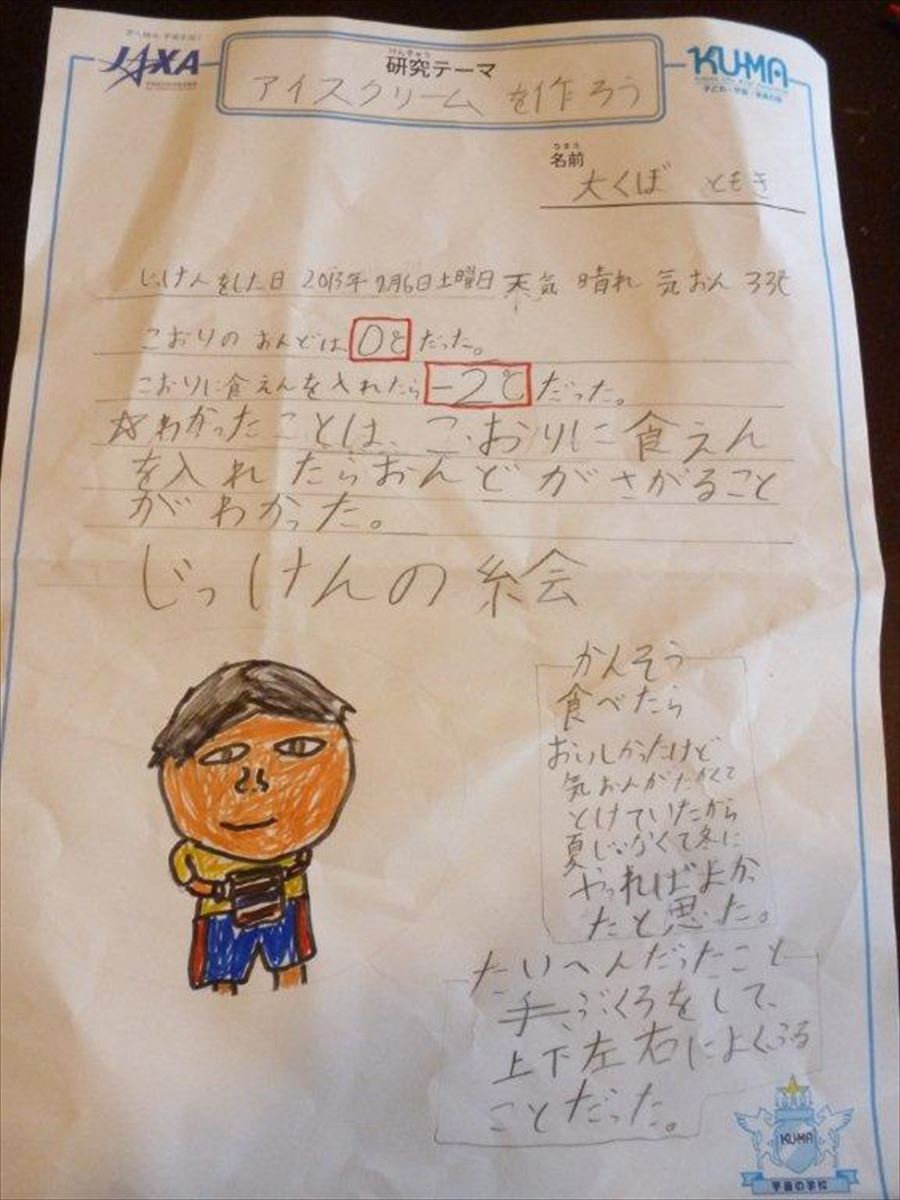 JAXA
けんきゅう
研究テーマ
アイスクリームを作ろう
KU-MA
子ども・宇宙・未来の会
なまえ
名前
大くぼ ともき
じっけんをした日 2013年 9月6日土曜日 天気 晴れ 気おん 33℃
こおりのおんどは0℃だった。
こおりに食えんを入れたら-2℃だった。
☆わかったことは、こおりに食えん
を入れたらおんどがさがること
がわかった。
じっけんの絵
かんそう
食べたら
おいしかったけど
気おんがたかくて
とけていたから
夏じゃなくて冬に
やればよかっ
たと思った。
たいへんだったこと
手ぶくろをして、
上下左右によくふる
ことだった。
KU-MA
宇宙の学校